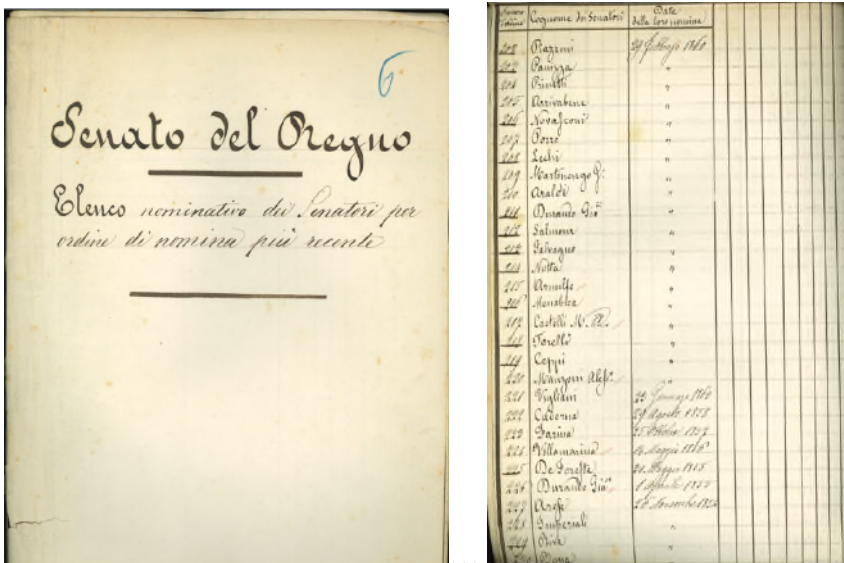 6
Senato del Regno
Elenco nominativo dei Senatori per
ordine di nomina più recente
Cognome dei Senatori Date della loro nomina
202 Piazzoni 29 Febbraio 1860
203 Panizza "
204 "
205 Arrivabene "
206 "
207 Porro "
208 Lechi "
209 Martinengo G. "
210 Araldi "
211 Durando Gio. "
212 Salmour "
213 Galvagno "
214 Notta "
215 Arnulfo "
216 Menabrea "
217 Castelli M. "
218 Torelli "
219 Ceppi "
220 Manzoni Aless. "
221 Vigliani 1860
222 Cadorna 29 Agosto 1858
223 Farina
224 Villamarina Maggio
225 De Foresta Maggio 1855
226 Durando 1 Aprile 1855
227 Arese Novembre
228 Imperiali "
229 Riva "
230